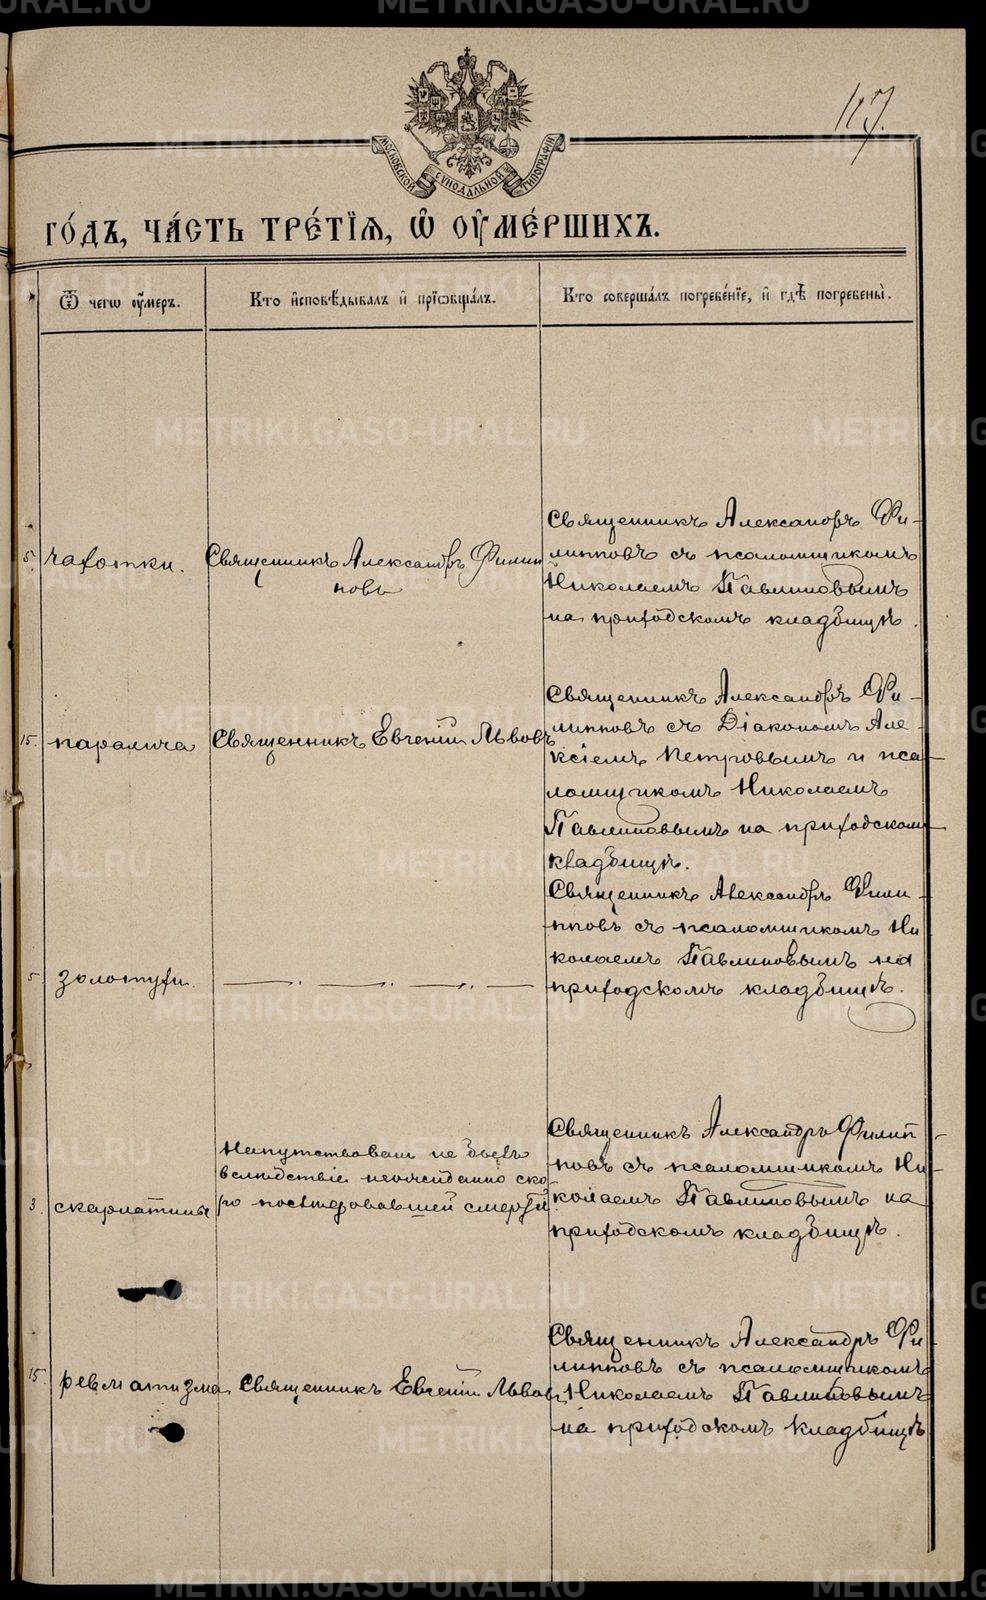 117.
МОСКОВСКОЙ СѴНОДАЛЬНОЙ ТИПОГРАФІИ
ГО́ДЪ, ЧА́СТЬ ТРЕ́ТЇѦ, Ѡ҆ ОУ҆МЕ́РШИХЪ.
Ѿ чегѡ оу҆меръ.
Кто и҆сповѣ́дывалъ и҆ прїѡбща́лъ.
Кто соверша́лъ погребе́нїе, и҆ гдѣ̀ погребены̀.
5. чахотки.
Священникъ Александръ Филип
повъ
Священникъ Александръ Фи-
липповъ съ псаломщикомъ
Николаемъ Павлиновымъ
на приходскомъ кладбищѣ.
15. паралича
Священникъ Евгеній Львовъ
Священникъ Александръ Фи-
липповъ съ Діакономъ Але-
ксіемъ Петровымъ и пса-
ломщикомъ Николаемъ
Павлиновымъ на приходскомъ
кладбищѣ.
5 золотухи.
Священникъ Александръ Фили-
пповъ съ псаломщикомъ Ни
колаемъ Павлиновымъ на
приходскомъ кладбищѣ.
3. скарлатины
Напутствованъ не былъ
вслѣдствіе неожиданно ско
ро послѣдовавшей смерти.
Священникъ Александръ Филип
повъ съ псаломщикомъ Ни-
колаемъ Павлиновымъ на
приходскомъ кладбищѣ.
15. ревматизма
Священникъ Евгеній Львовъ
Священникъ Александръ Фи-
липповъ съ псаломщикомъ
Николаемъ Павлиновымъ
на приходскомъ кладбищѣ
METRIKI.GASO-URAL.RU